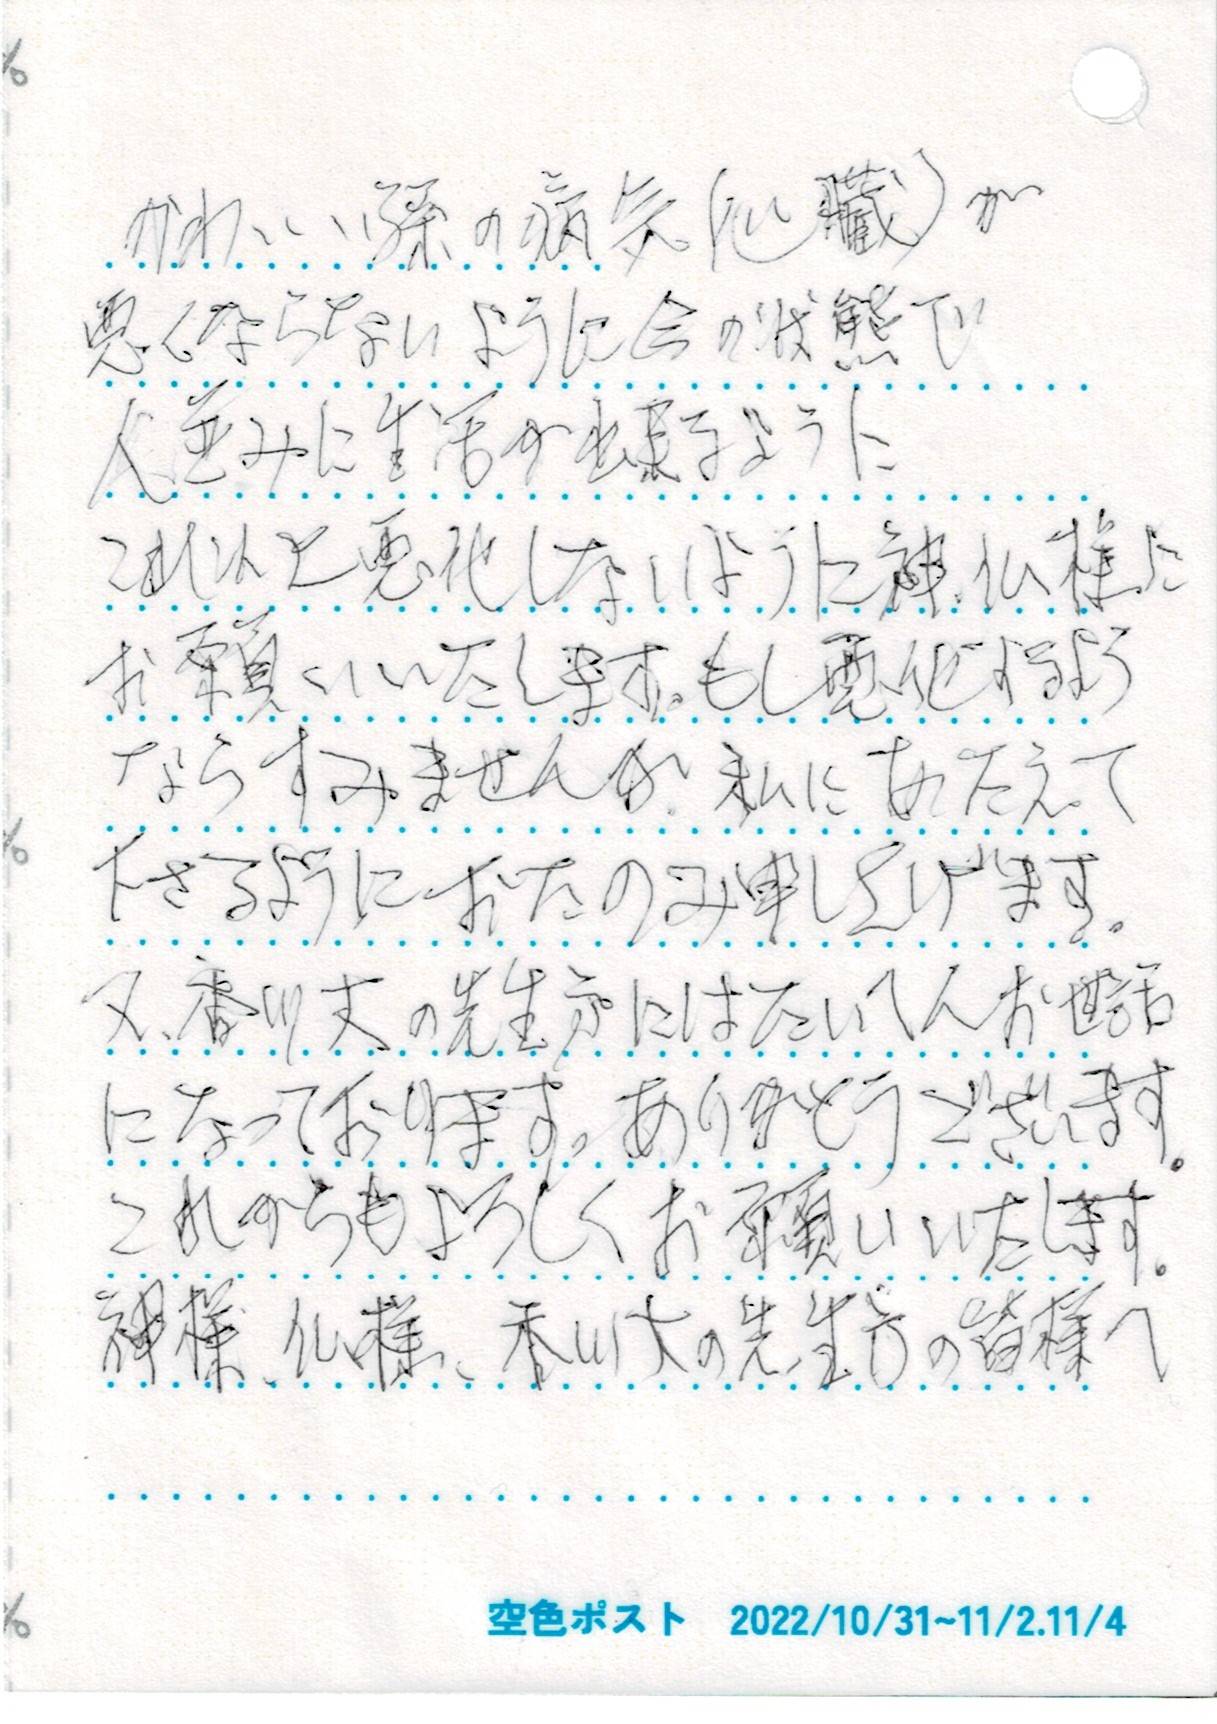 かわいい孫の病気(心臓)が
悪くならないように今の状態で
人並みに生活が出来るように
これ以上悪化しないように神、仏様に
お願いいたします。もし悪化するよう
ならすみませんが、私にあたえて
下さるようにおたのみ申し上げます。
又、香川大の先生方にはたいへんお世話
になっております。ありがとうございます。
これからもよろしくお願いいたします。
神様、仏様、香川大の先生方の皆様へ
空色ポスト 2022/10/31~11/2.11/4